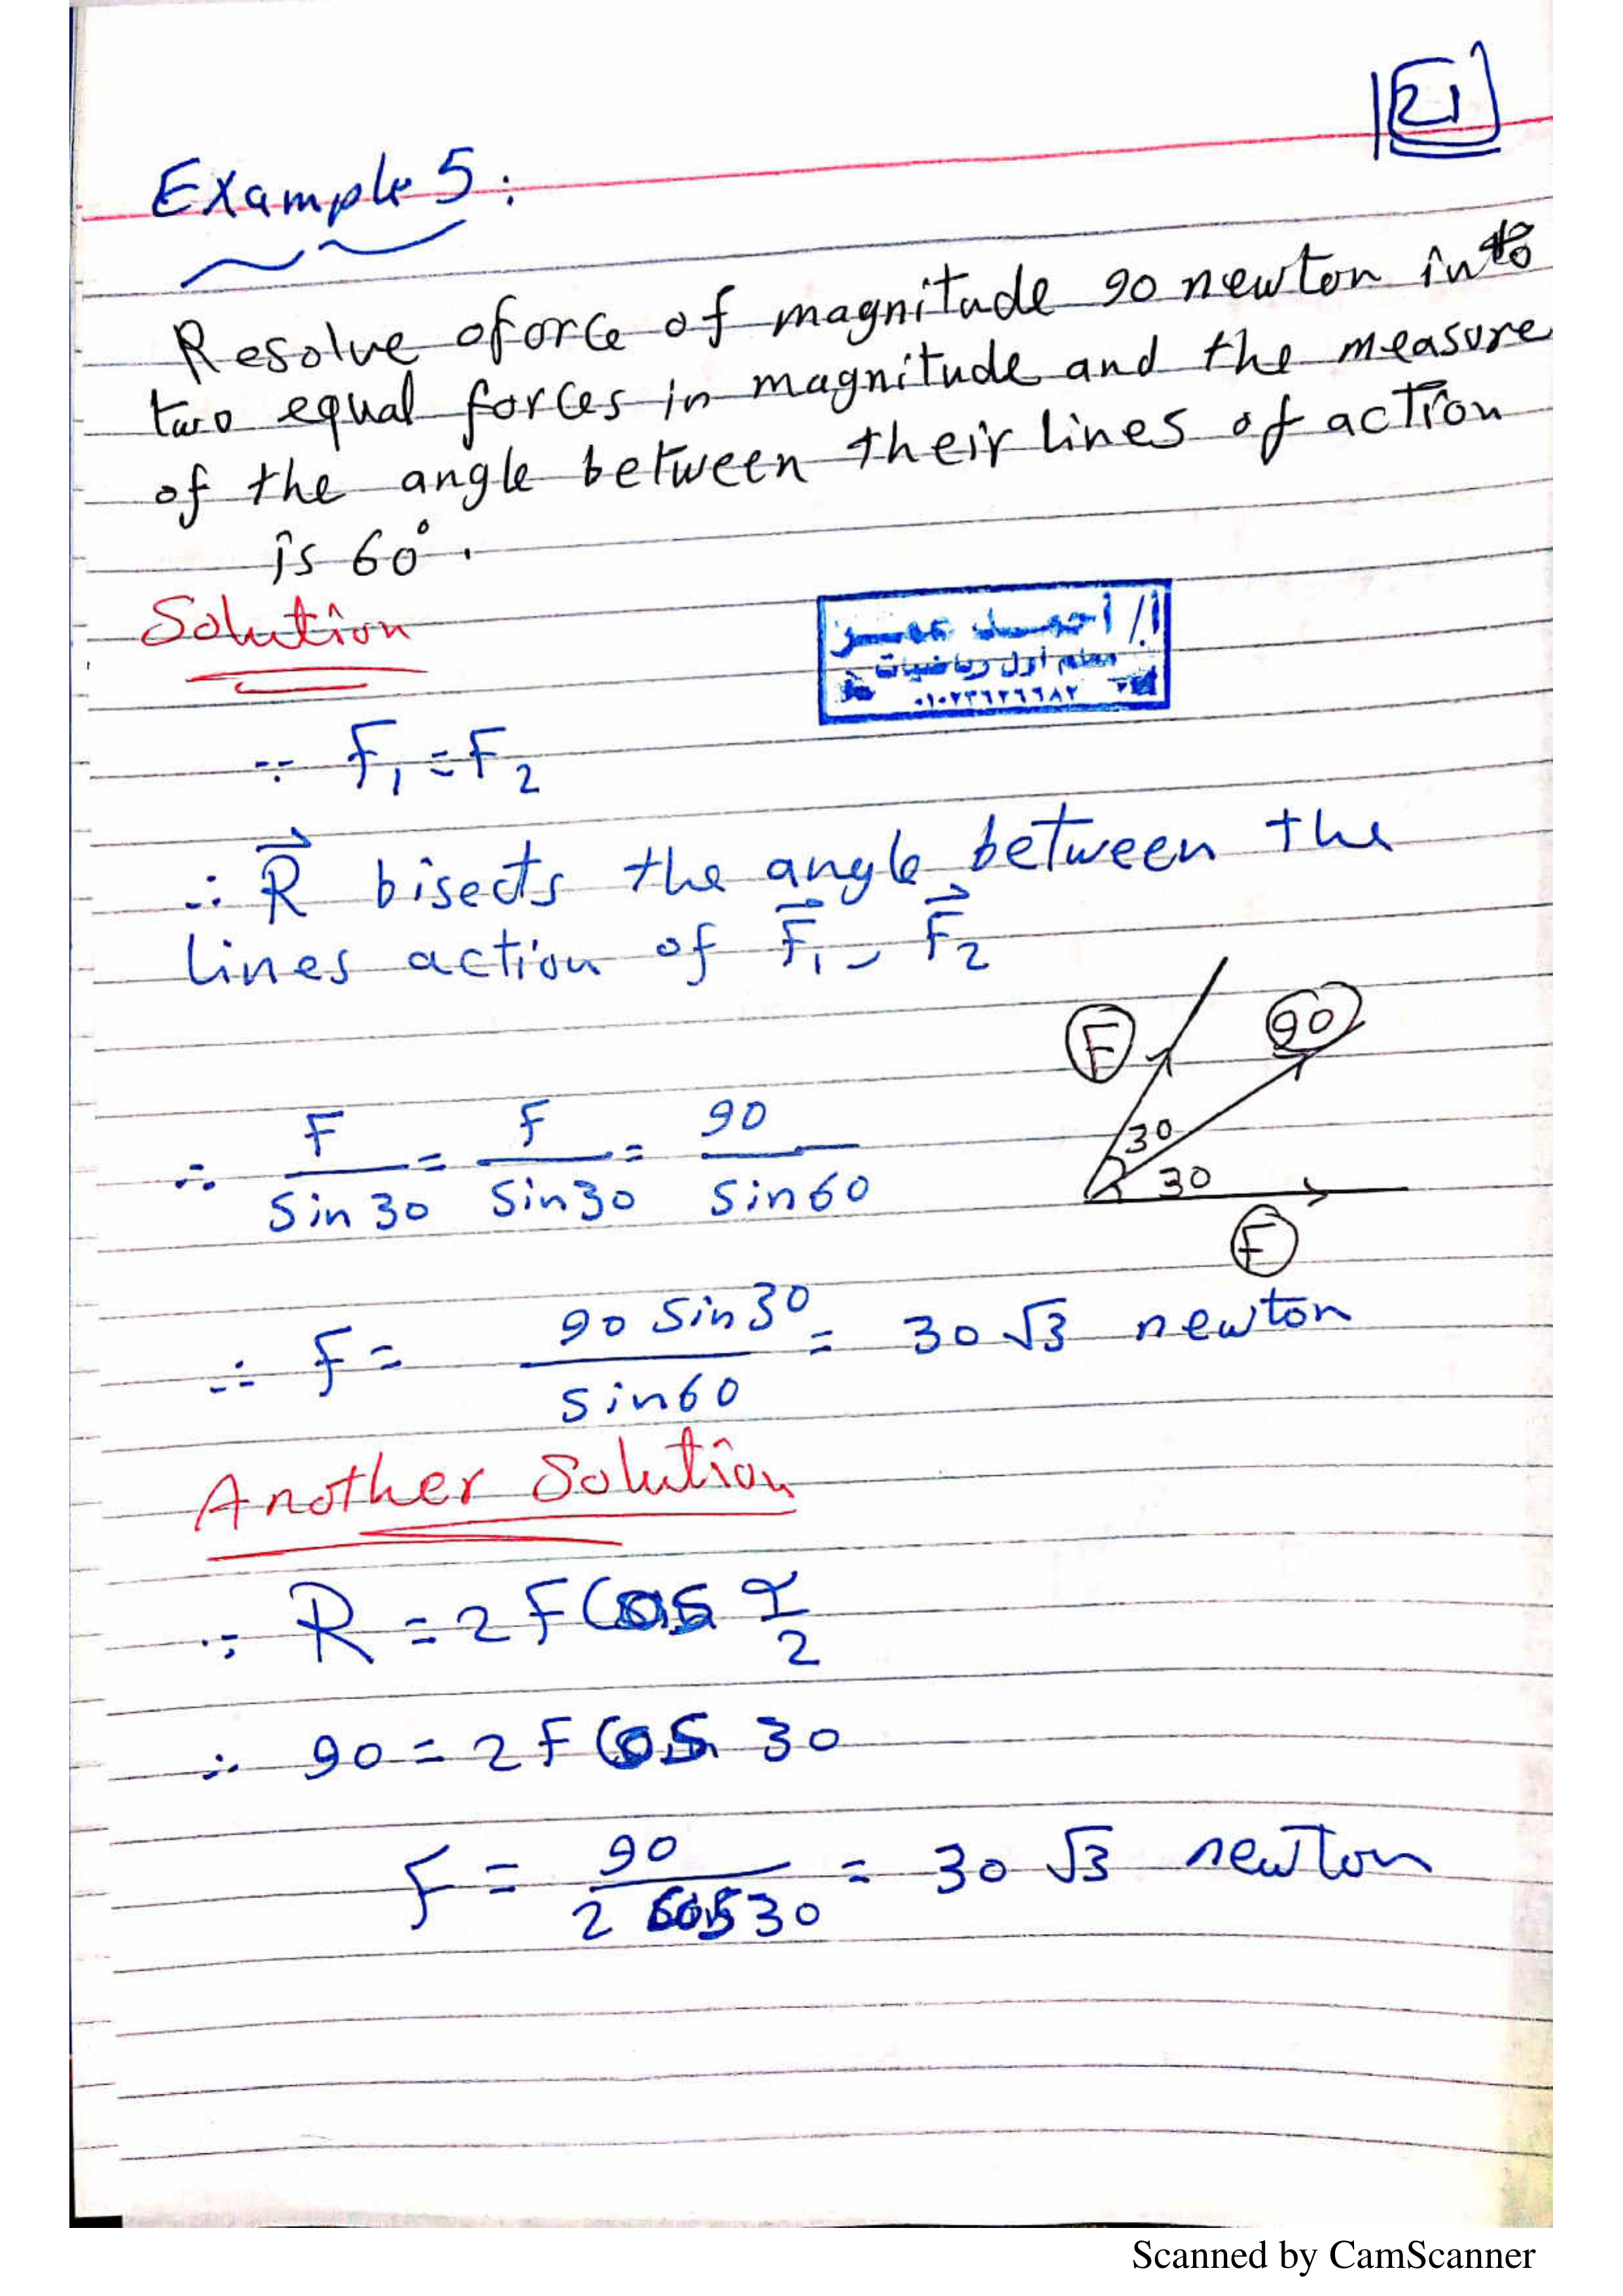 21
Example 5:
Resolve a force of magnitude 90 newton into
two equal forces in magnitude and the measure
of the angle between their lines of action
is 60°.
Solution
أ/ أحمد عمر
معلم أول رياضيات
∵ F₁ = F₂
∴ R⃗ bisects the angle between the
lines action of F⃗₁, F⃗₂
F 90
30
30
F
∴ F/sin30 = F/sin30 = 90/sin60
∴ F = 90 sin30/sin60 = 30√3 newton
Another Solution
∵ R = 2F Cos α/2
∴ 90 = 2F Cos 30
F = 90/2 cos30 = 30√3 newton
Scanned by CamScanner